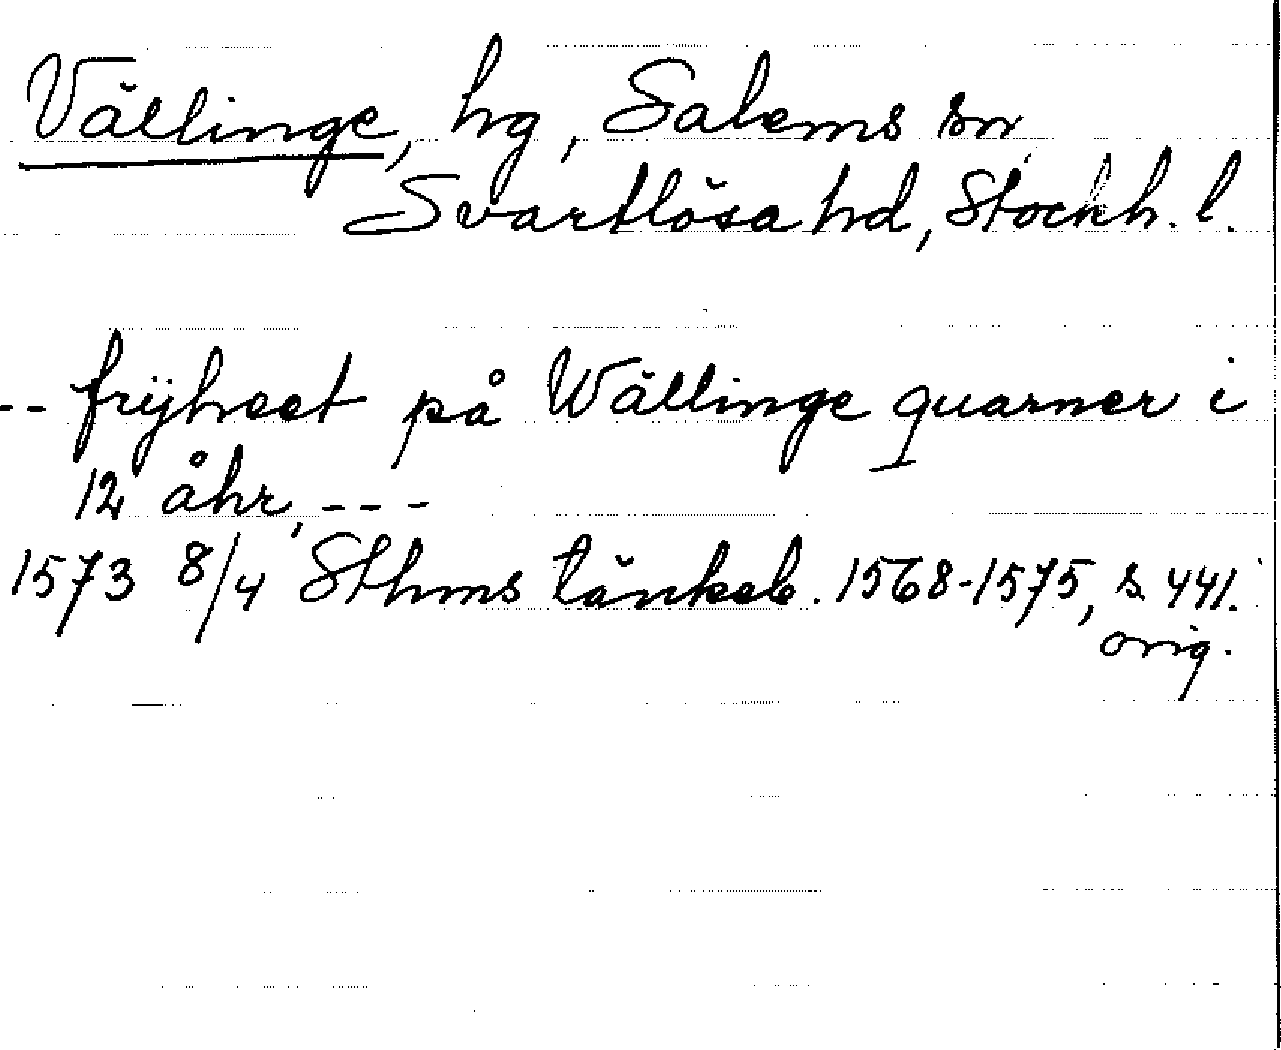 Vällinge, hg, Salems sn
Svartlösa hd, Stockh. l.
-- frijheet på Wällinge quarner i
12 åhr, ---
1573 8/4 Sthms tänkeb. 1568-1575, s. 441.
orig.